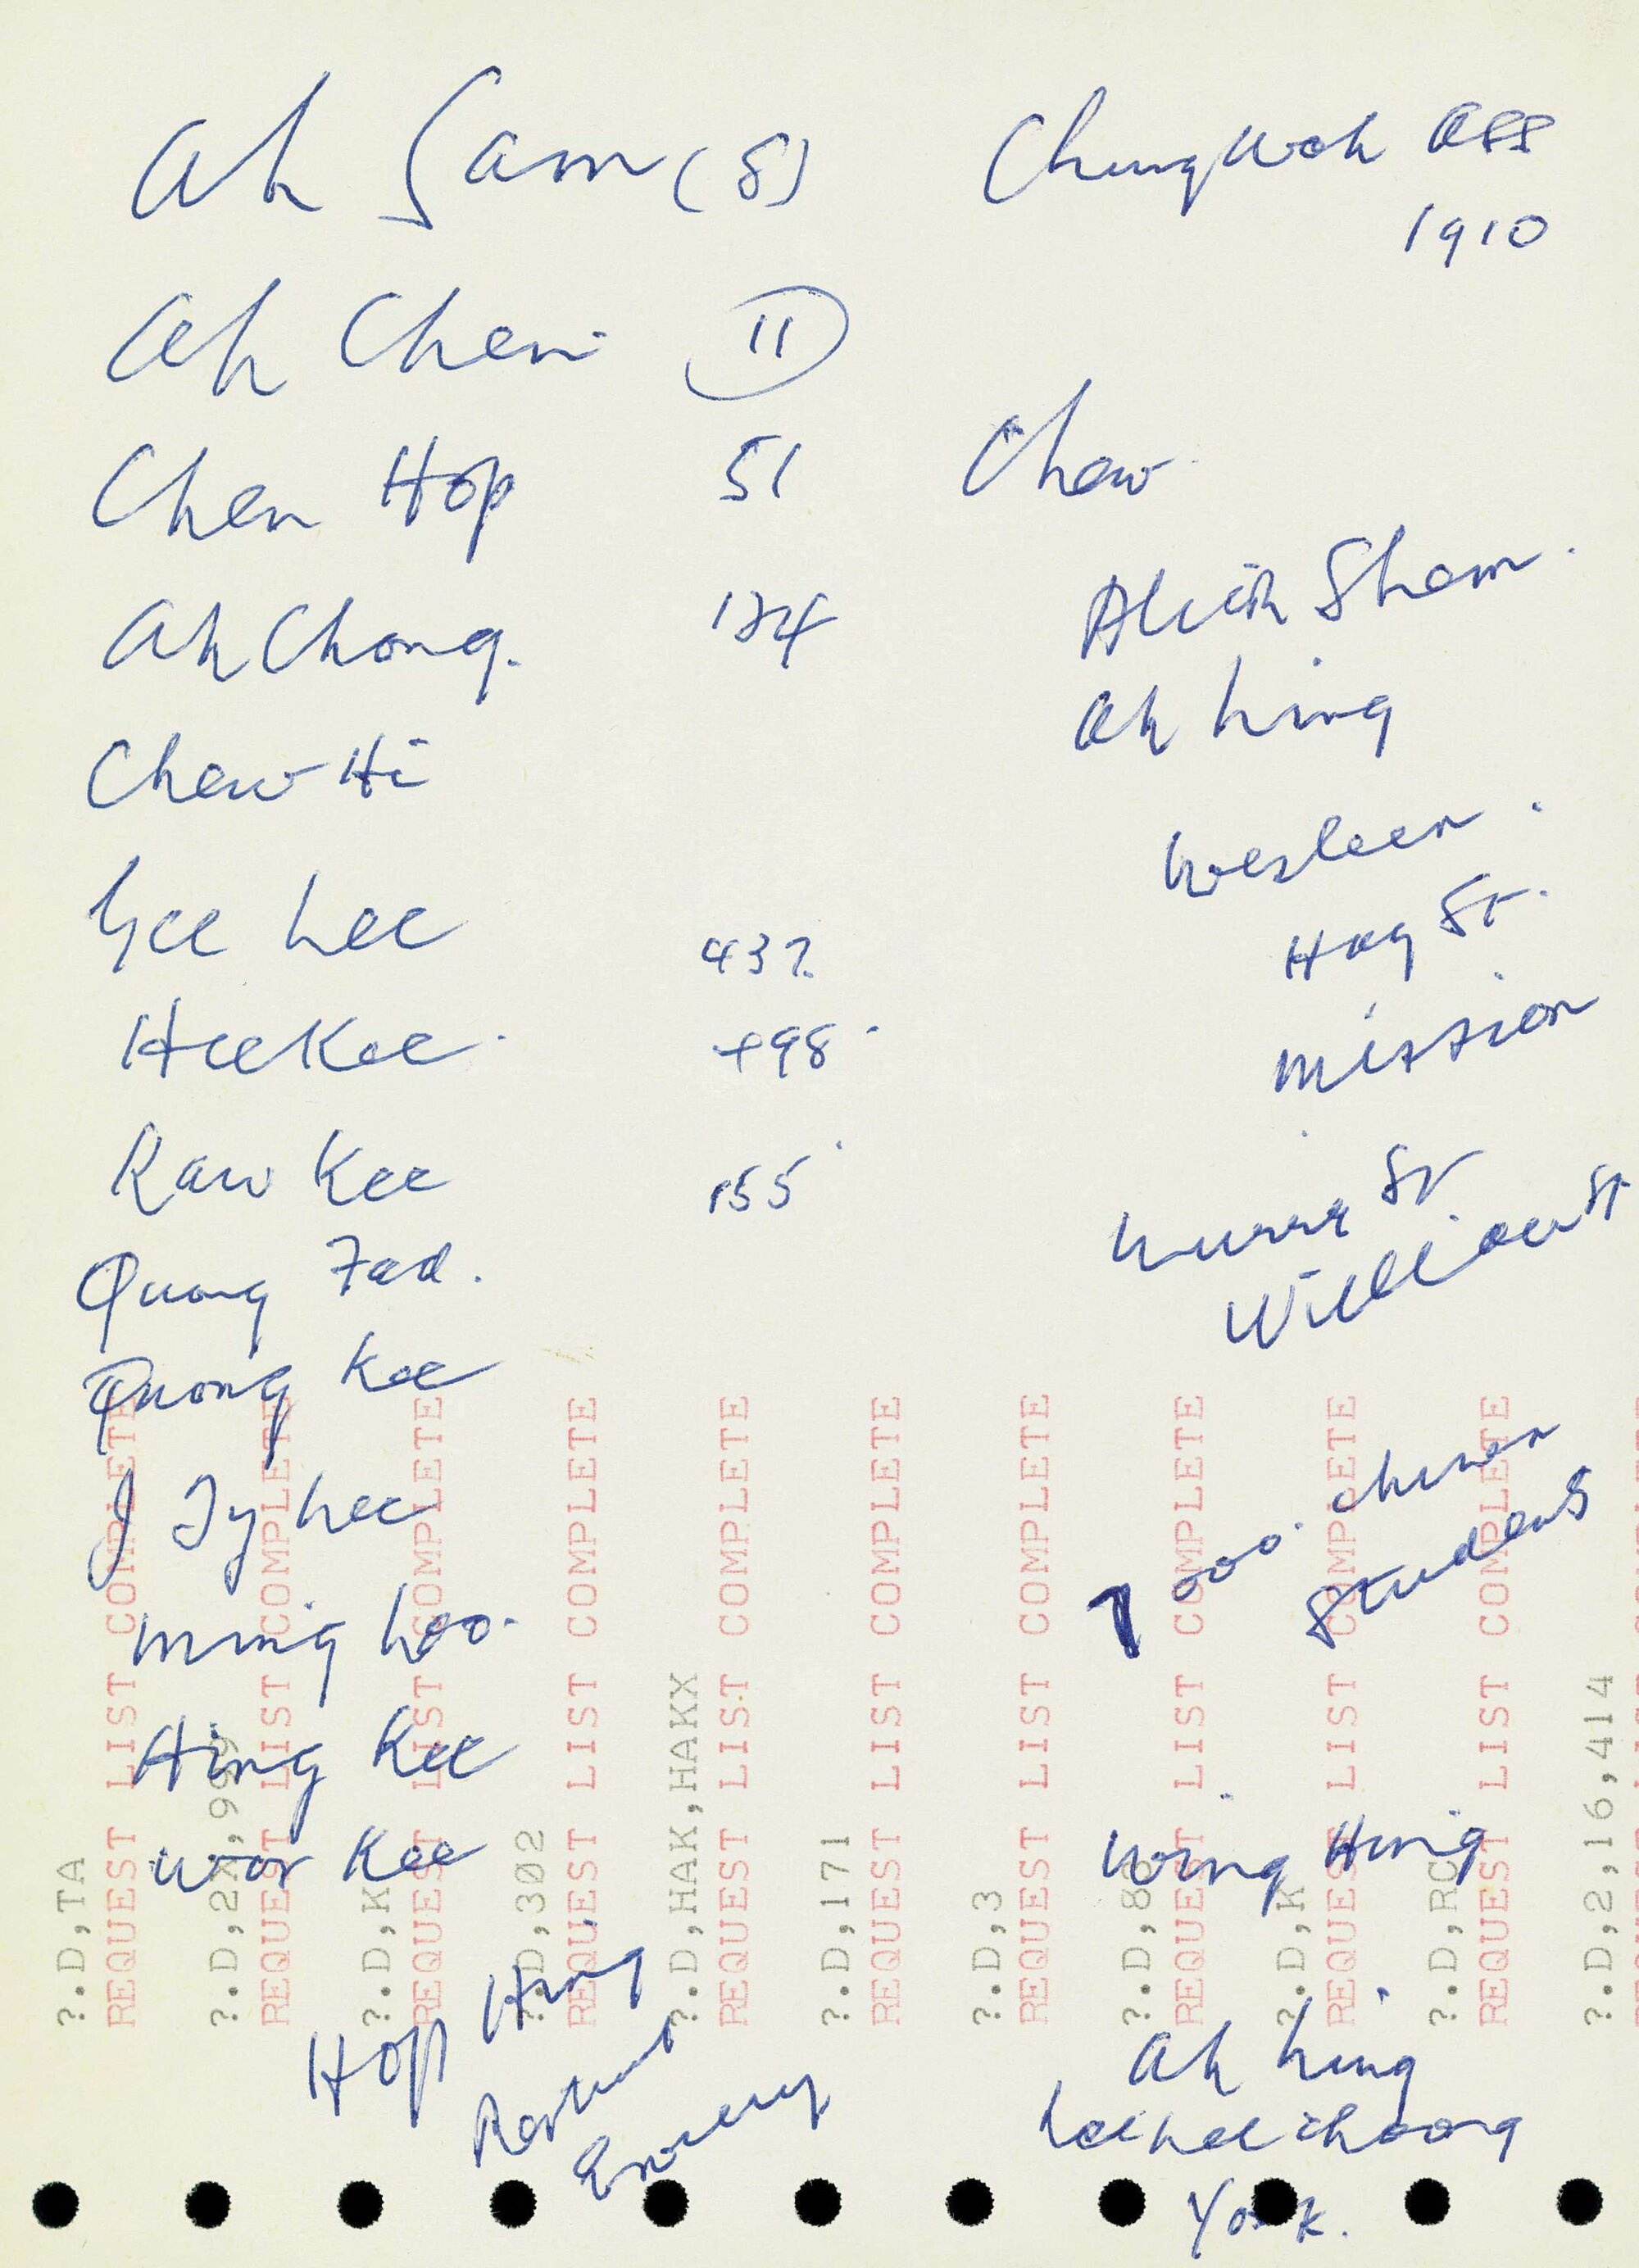 Ah Sam (8)
Chung Wah Ass
1910
Ah Chen 11
Chen Hop 51
Chew
Ah Chong. 124
Aleck Sham.
Ah Ling
Chew Hi
Western.
Hay St.
Mission
Gee Lee 432
Hee Kee. 498.
Raw Kee 155
Murray St
William St
Quong Fad.
Quong Kee
J Ty Lee
7000. Chinese
Students
Ming Loo.
Hing Kee
Wor Kee
Wing Hing
Hop Hing
Ah Ling
Lee Lee Choong
York.
?.D,TA
REQUEST LIST COMPLETE
REQUEST LIST COMPLETE
?.D,K
REQUEST LIST COMPLETE
?.D,302
REQUEST LIST COMPLETE
?.D,HAK,HAKX
REQUEST LIST COMPLETE
?.D,171
REQUEST LIST COMPLETE
?.D,3
REQUEST LIST COMPLETE
REQUEST LIST COMPLETE
?.D,K
REQUEST LIST COMPLETE
?.D,RC
REQUEST LIST COMPLETE
?.D,2,16,414